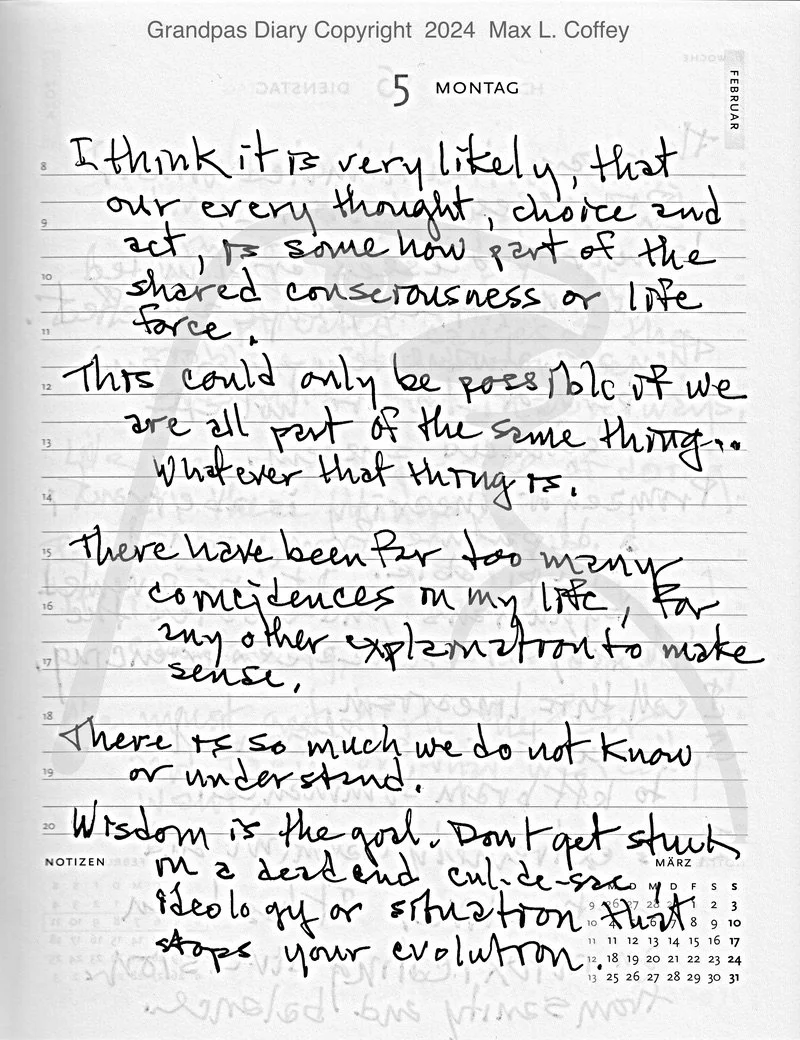 Grandpas Diary Copyright 2024 Max L. Coffey
5 MONTAG
FEBRUAR
8 I think it is very likely, that
9 our every thought, choice and
act, is somehow part of the
10 shared consciousness or life
11 force.
12 This could only be possible if we
13 are all part of the same thing...
Whatever that thing is.
14
15 There have been far too many
16 coincidences in my life, for
any other explanation to make
17 sense.
18 There is so much we do not know
19 or understand.
20 Wisdom is the goal. Don't get stuck
NOTIZEN MÄRZ
in a dead end cul-de-sac,
M D M D F S S
ideology or situation that
9 26 27 28 2 3
10 4 5 6 7 8 9 10
stops your evolution.
11 11 12 13 14 15 16 17
12 18 19 20 21 22 23 24
13 25 26 27 28 29 30 31